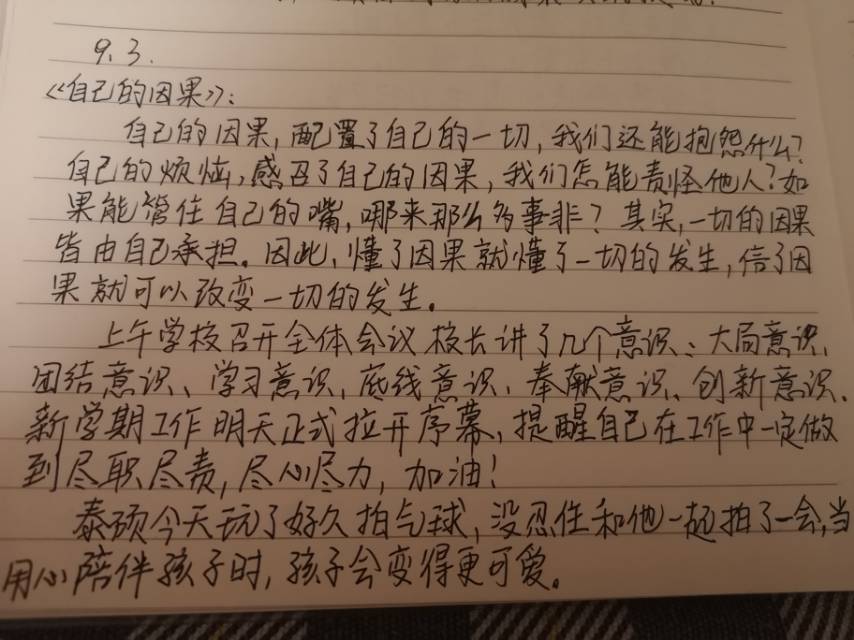 9.3.
《自己的因果》:
自己的因果,配置了自己的一切,我们还能抱怨什么?
自己的烦恼,感召了自己的因果,我们怎能责怪他人?如
果能管住自己的嘴,哪来那么多事非?其实,一切的因果
皆由自己承担。因此,懂了因果就懂了一切的发生,信了因
果就可以改变一切的发生。
上午学校召开全体会议校长讲了几个意识:大局意识、
团结意识、学习意识、底线意识、奉献意识、创新意识。
新学期工作明天正式拉开序幕,提醒自己在工作中一定做
到尽职尽责,尽心尽力,加油!
泰硕今天玩了好久拍气球,没忍住和他一起拍了一会,当
用心陪伴孩子时,孩子会变得更可爱。